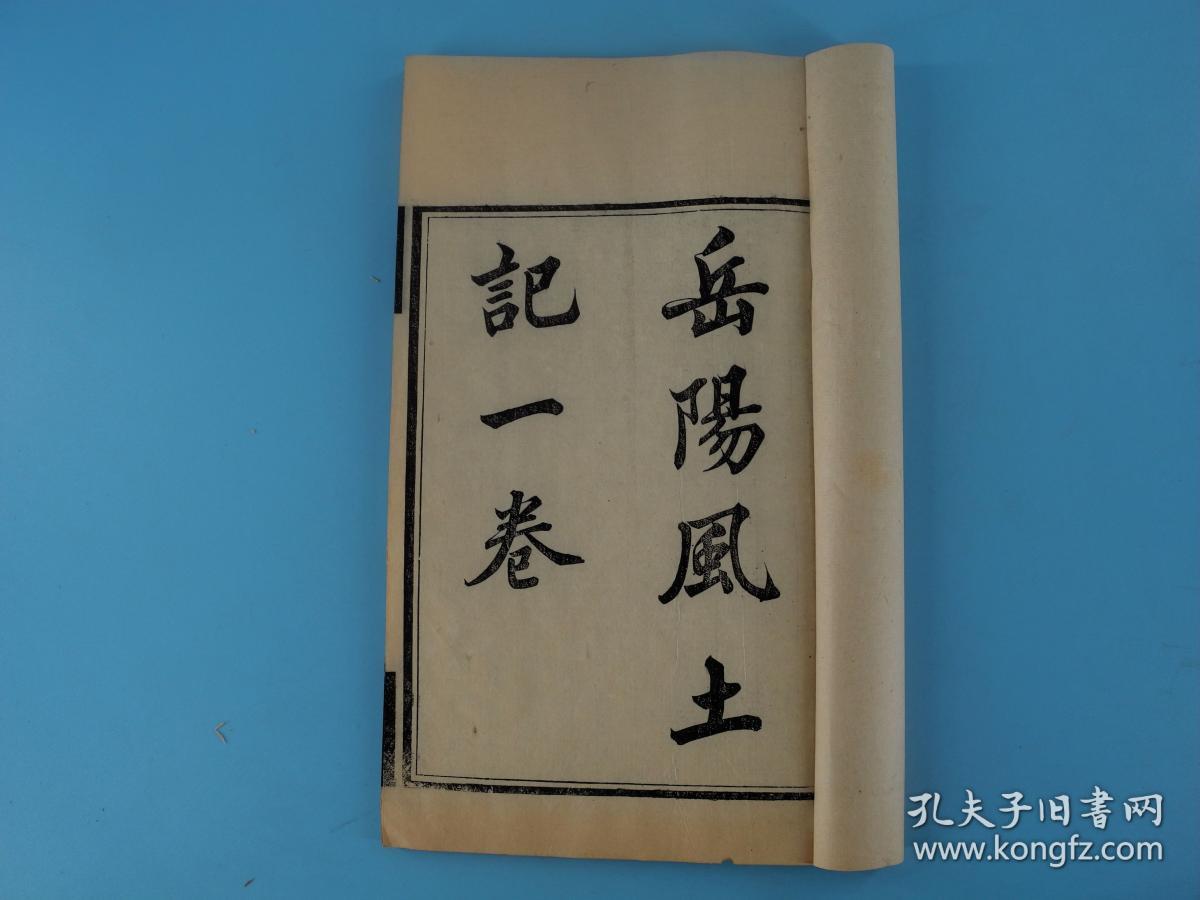 岳陽風土
記一卷
孔夫子旧書网
www.kongfz.com